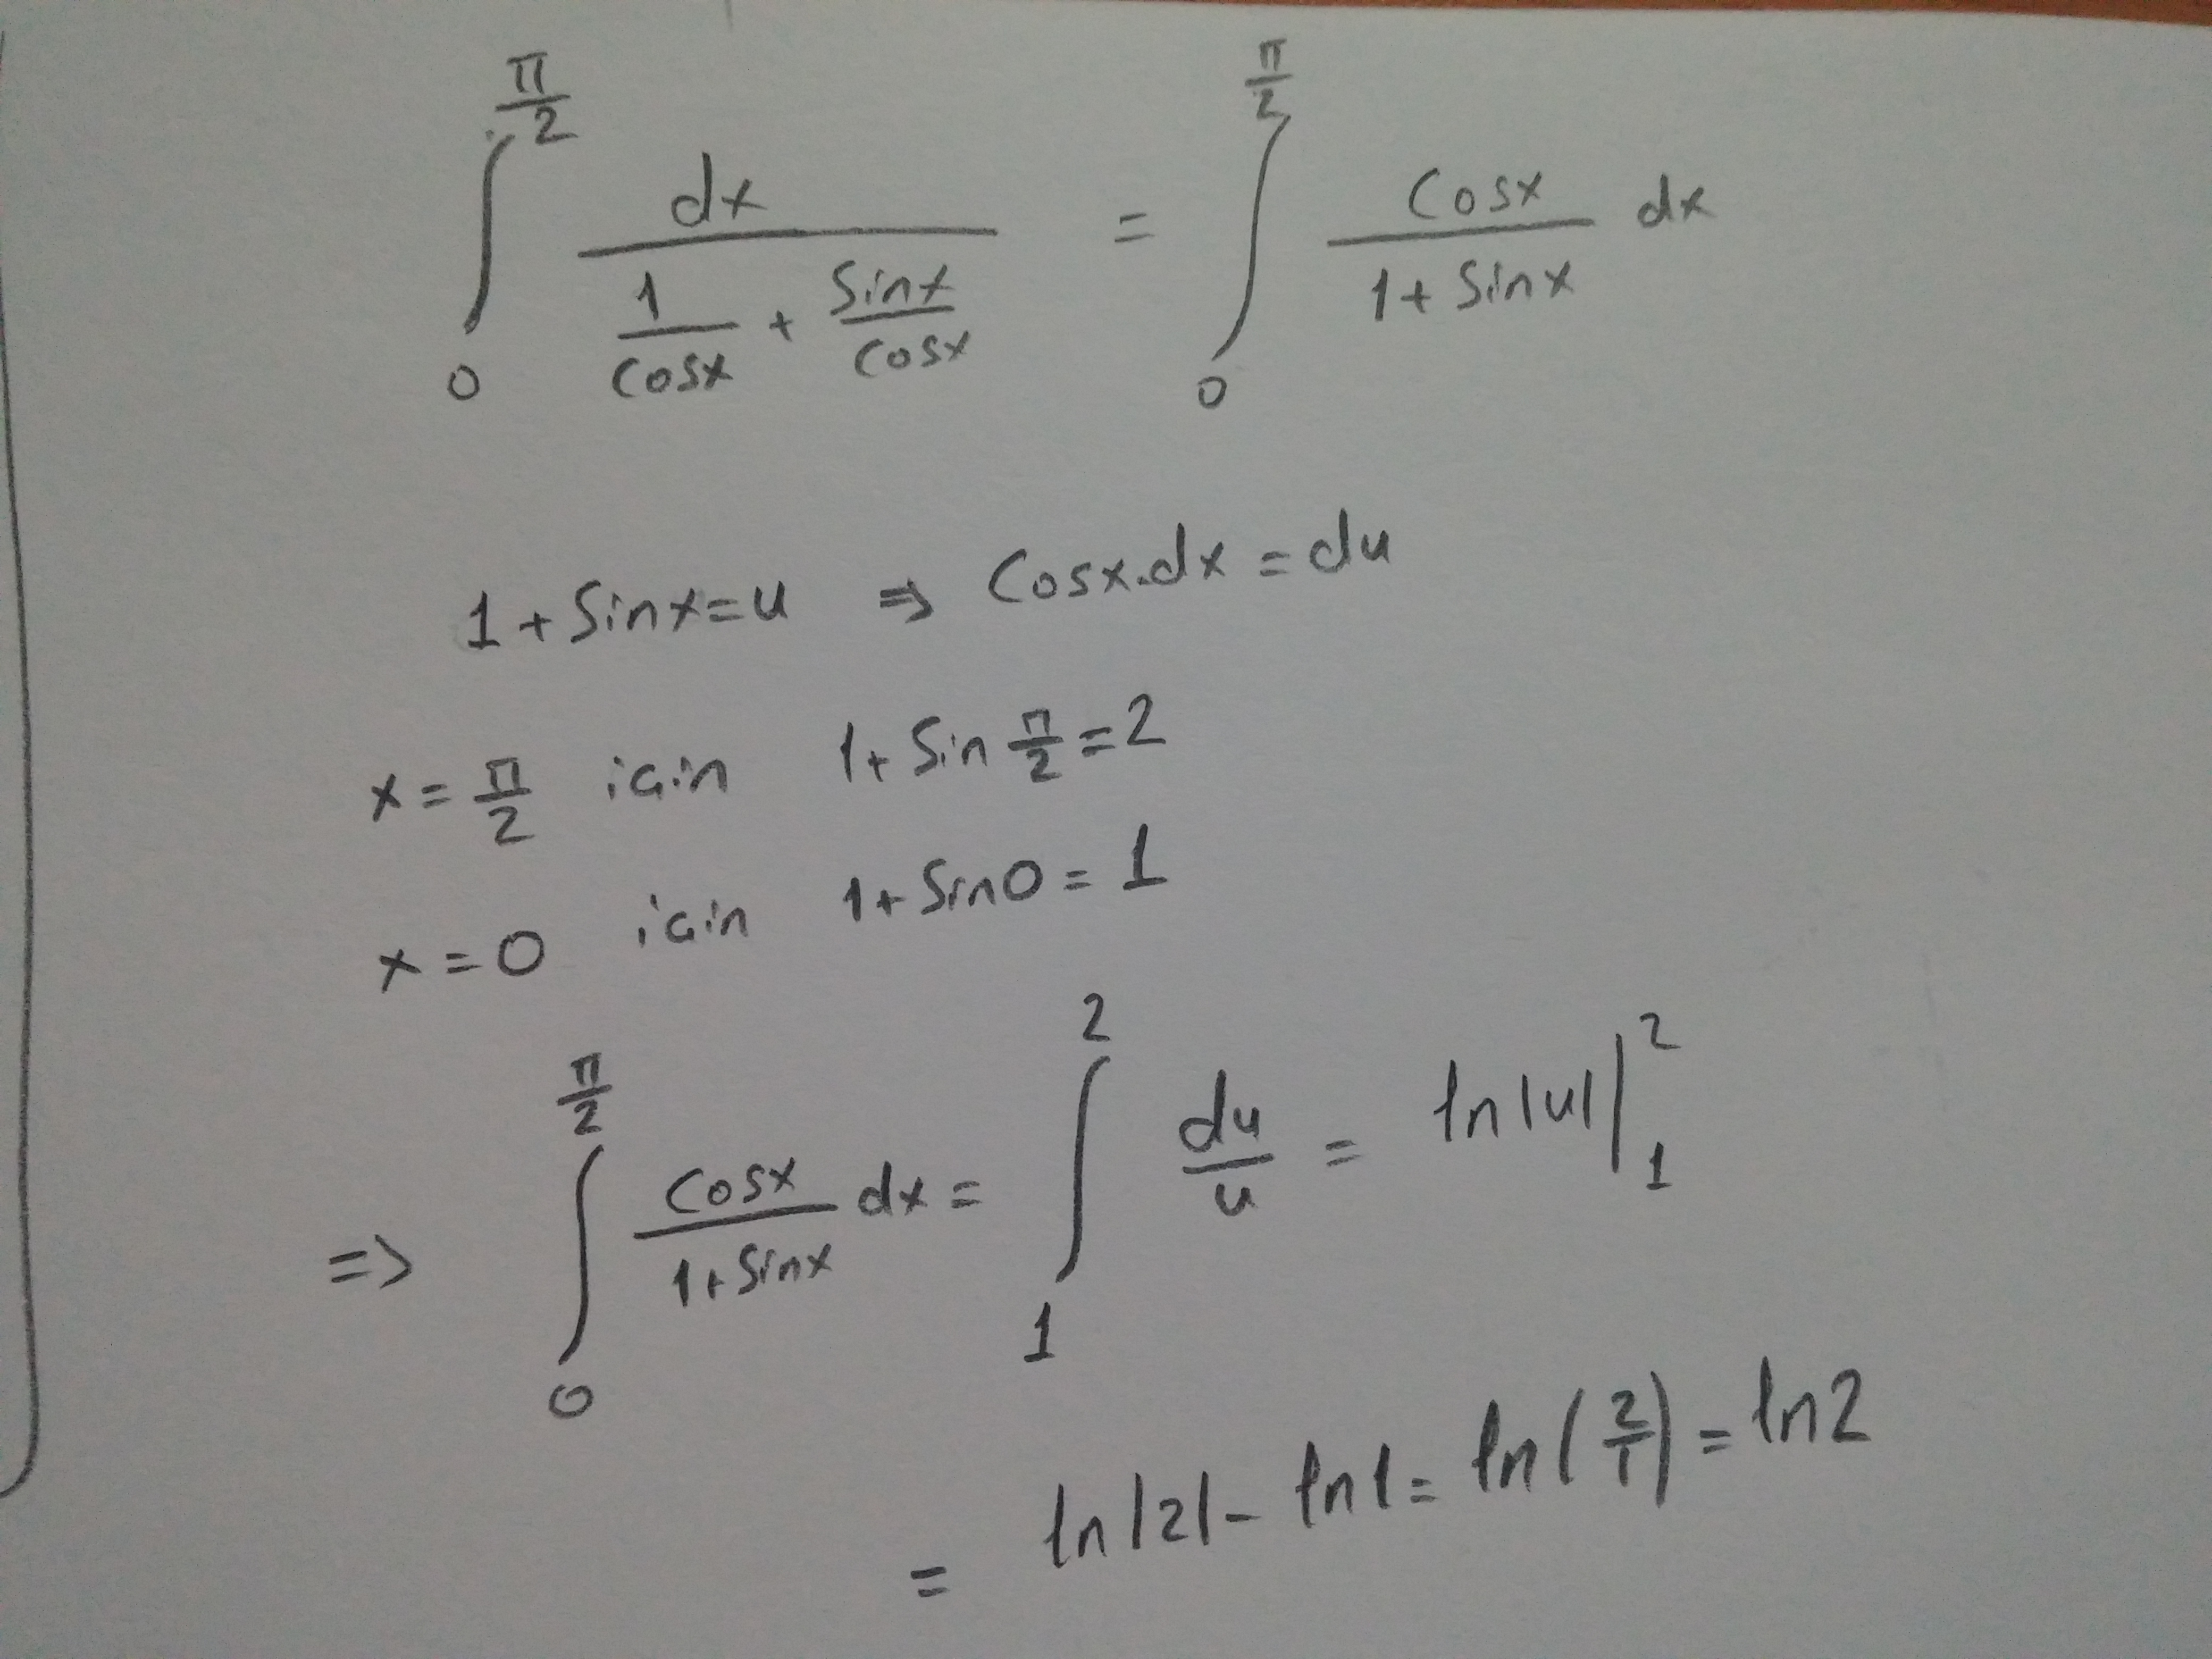 ∫₀^{π/2} dx / (1/cosx + sinx/cosx) = ∫₀^{π/2} cosx / (1 + sinx) dx
1 + sinx = u ⇒ cosx.dx = du
x = π/2 için 1 + sin π/2 = 2
x = 0 için 1 + sin0 = 1
⇒ ∫₀^{π/2} cosx / (1 + sinx) dx = ∫₁² du/u = ln|u| |₁²
= ln|2| - ln1 = ln(2/1) = ln2